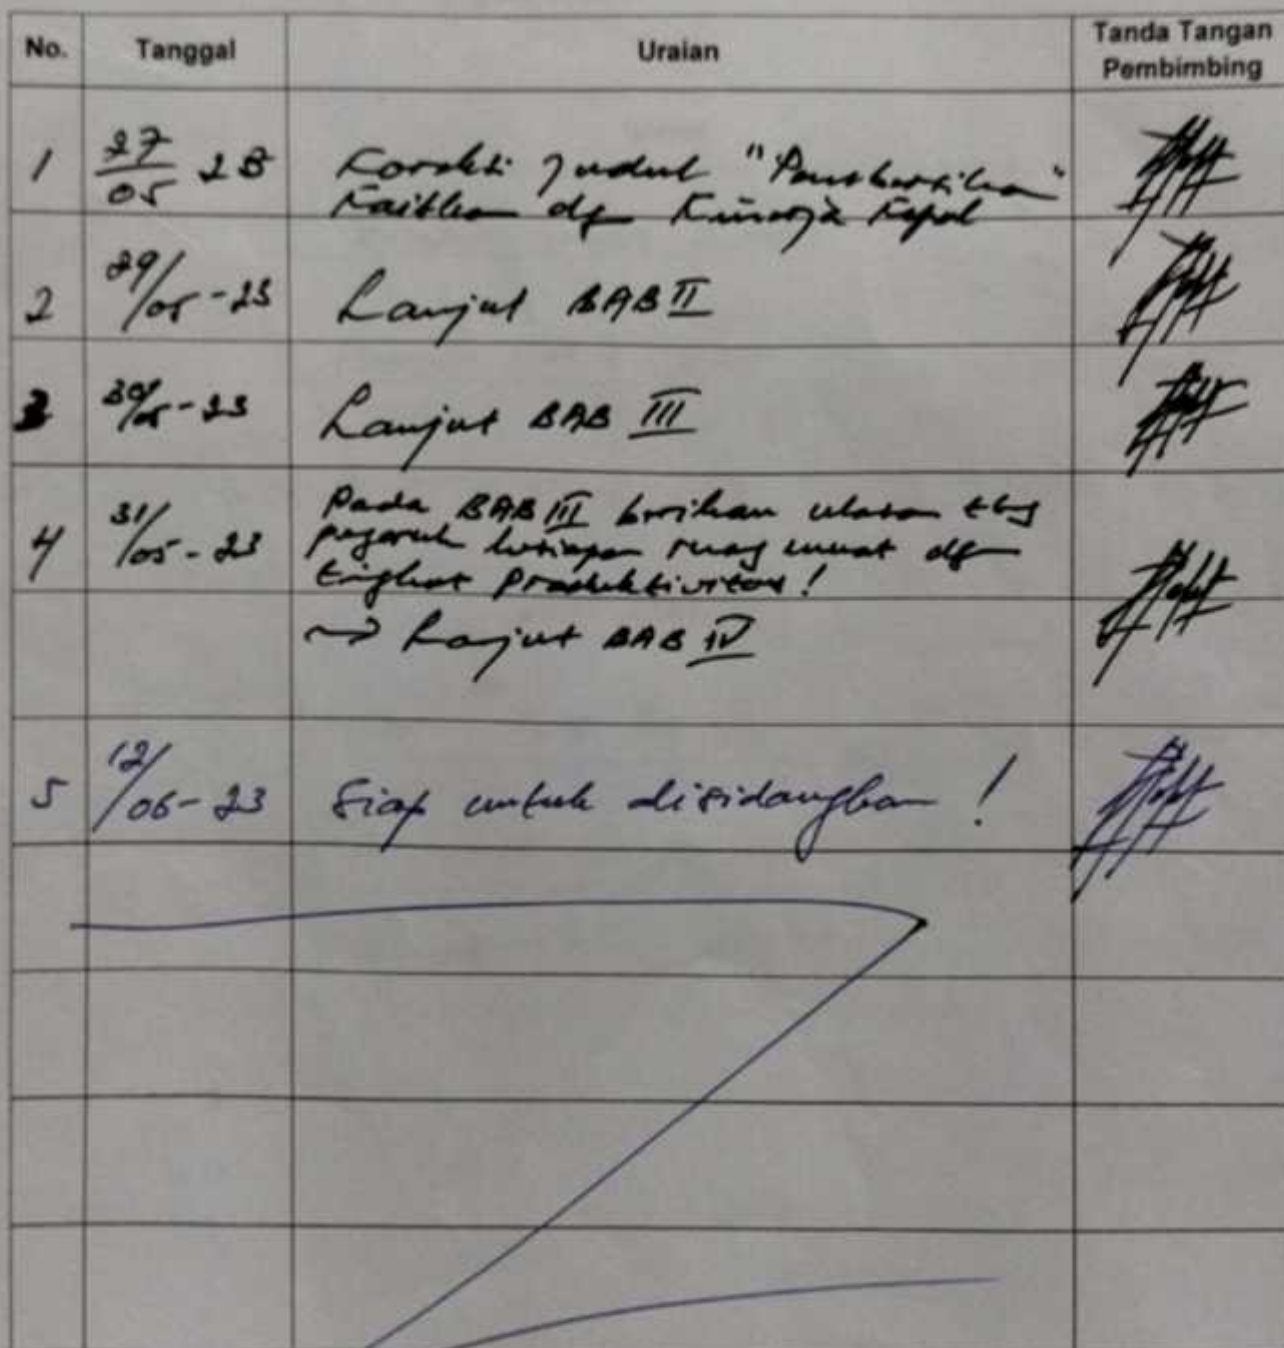 No. Tanggal Uraian Tanda Tangan
Pembimbing
1 27/05 23 Koreksi Judul "Pembersihan"
Kaitkan dg Kinerja Kapal
2 29/05-23 Lanjut BAB II
3 30/05-23 Lanjut BAB III
4 31/05-23 Pada BAB III berikan ulasan ttg
pegaruh kesiapan ruag muat dg
tigkat produktivitas!
→ Lanjut BAB IV
5 12/06-23 Siap untuk disidangkan !